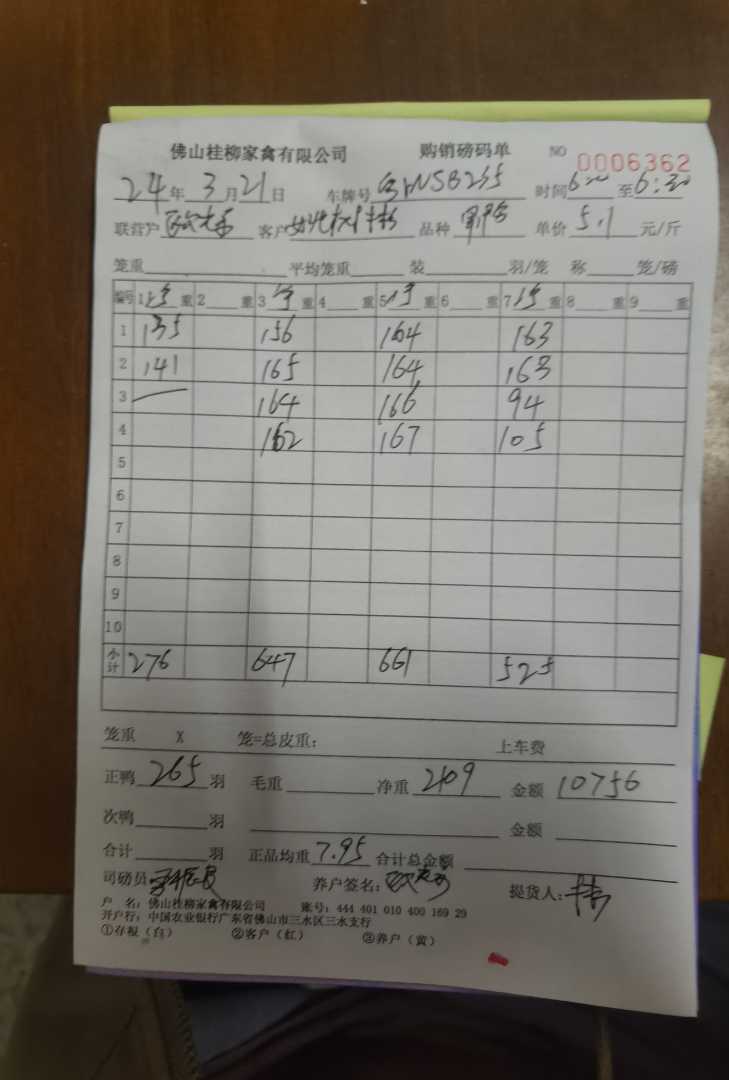 佛山桂柳家禽有限公司 购销磅码单 NO 0006362
24年3月21日 车牌号 时间6:00至6:30
联营户 客户 品种 单价5.1元/斤
笼重 平均笼重 装 羽/笼 称 笼/磅
编号 1 重 2 重 3 重 4 重 5 重 6 重 7 重 8 重 9 重
1 135 156 164 163
2 141 165 164 163
3 164 166 94
4 162 167 105
5
6
7
8
9
10
小计 276 647 661 525
笼重 X 笼=总皮重: 上车费
正鸭265羽 毛重 净重2109 金额10756
次鸭 羽 金额
合计 羽 正品均重7.95 合计总金额
司磅员 养户签名: 提货人:
户 名: 佛山桂柳家禽有限公司 账号: 444 401 010 400 169 29
开户行: 中国农业银行广东省佛山市三水区三水支行
①存根(白) ②客户(红) ③养户(黄)